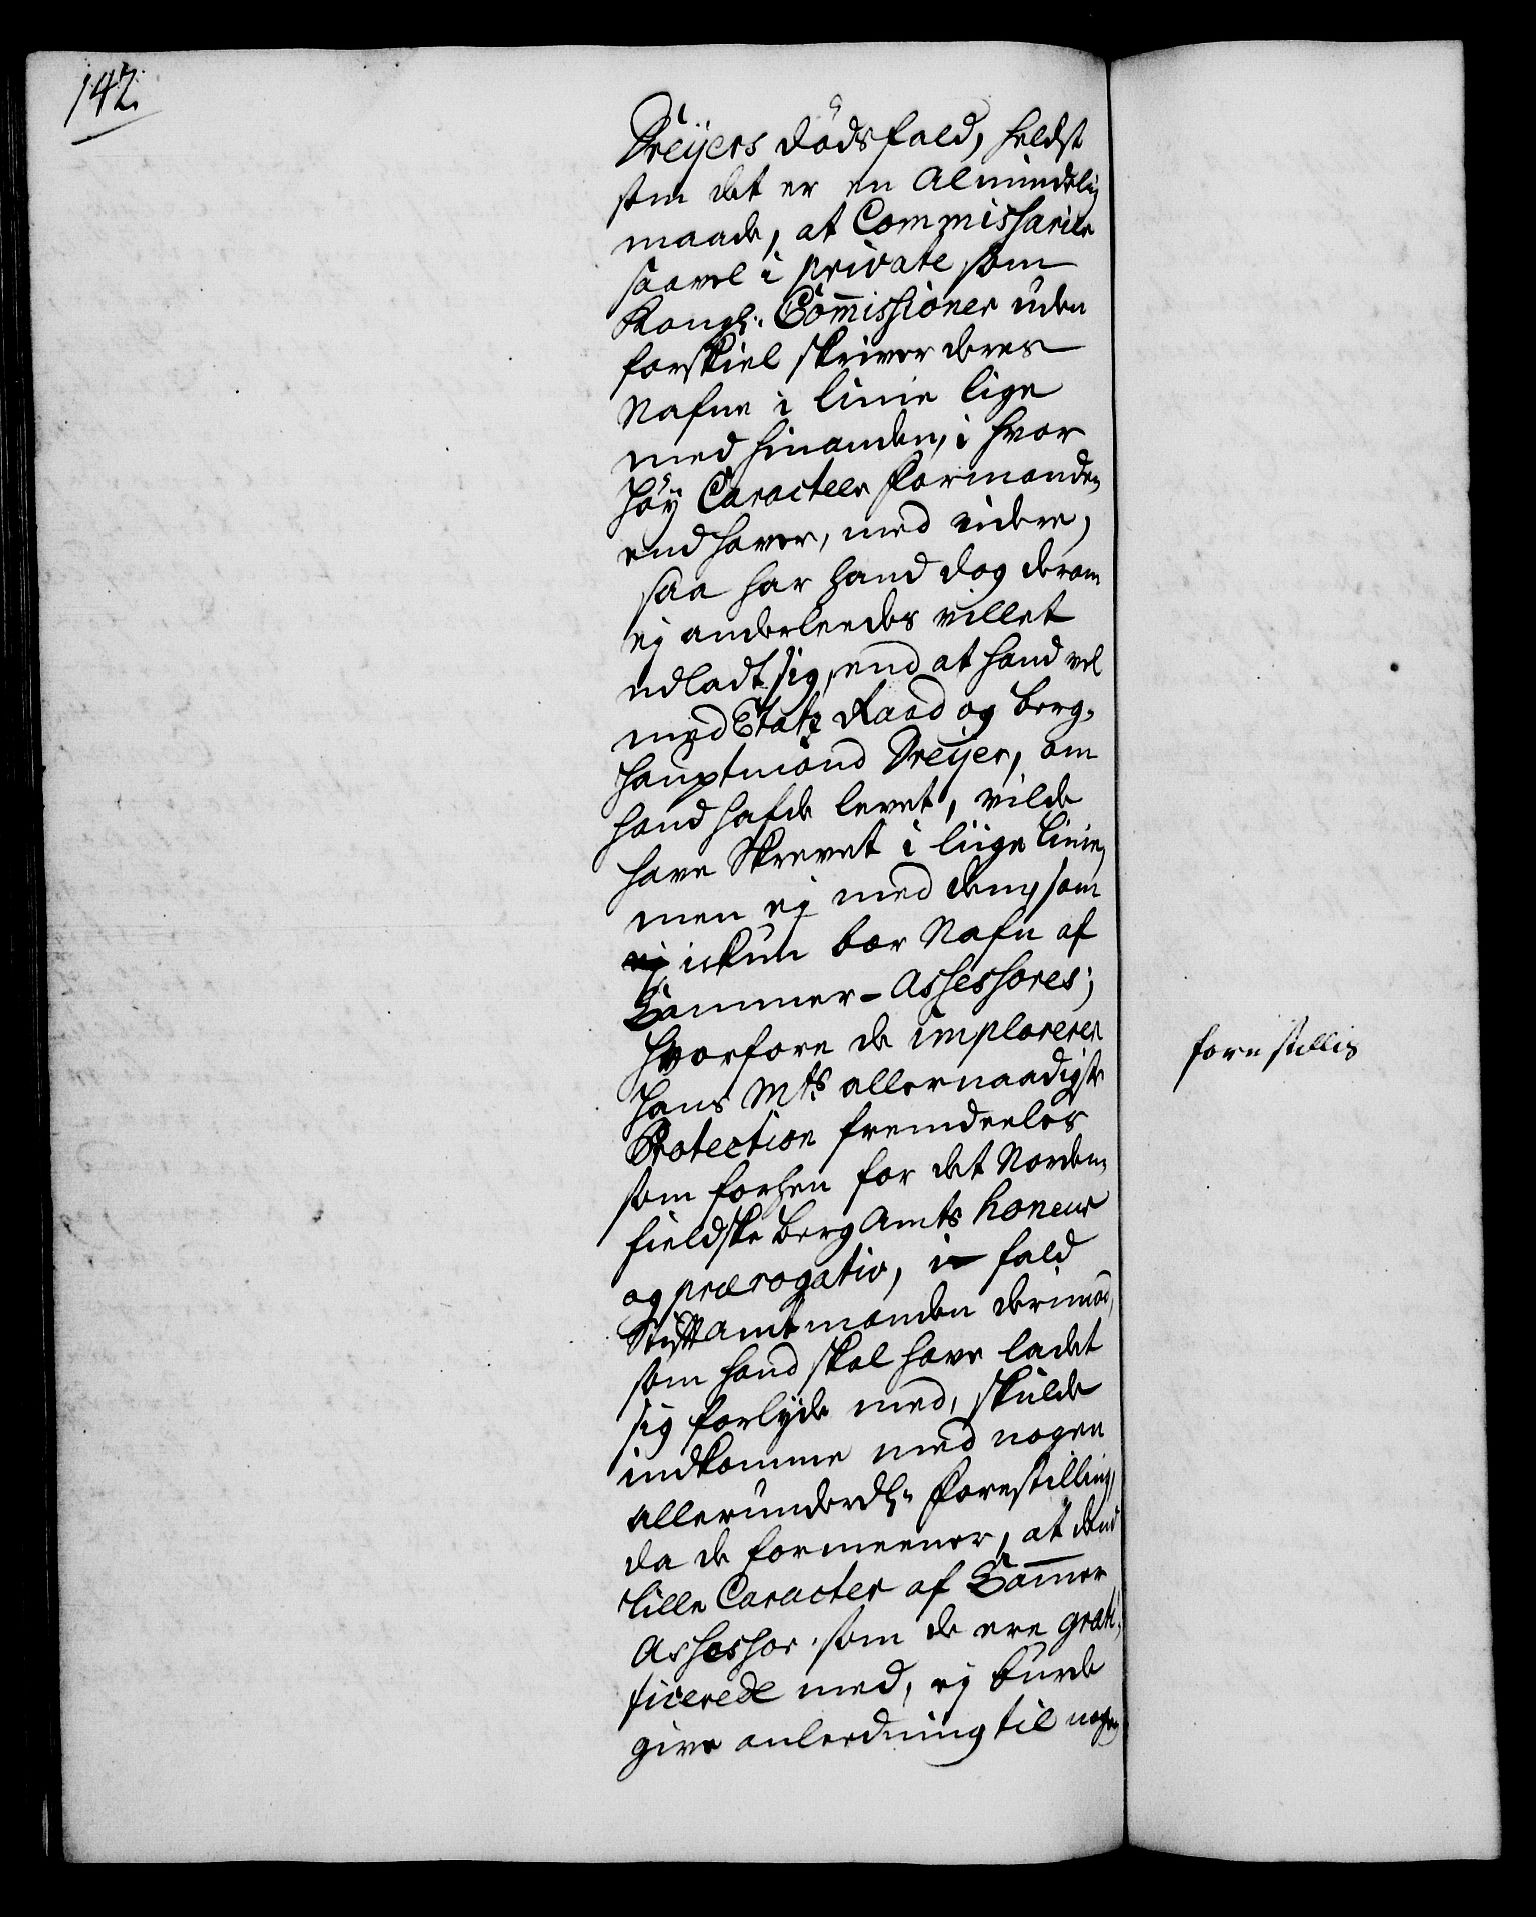 142.
Dreÿers dödsfald, heldst
som det er en Almindelig
maade, at Commissarier
saavel i private som
Kongl: Com̄issioner uden
forskiel skriver deres
Nafne i linie lige
med hinanden, i hvor
höÿ Caracteer formanden
end haver, med videre,
saa har hand dog derom
ej anderleedes villet
udladt sig, end at hand vel
med Etatz Raad og Berg-
hauptmand Dreÿer, om
hand hafde levet, vilde
have Skrevet i liige Linie,
men ej med dem, som
ickun bær Nafn af
Cammer-Assessores;
hvorfore de imploreren
Hans Mts allernaadigste
Protection fremdeeles
som forhen for det Norden-
fieldske Berg Amts honeur
og prærogativ, i fald
Stiftamtmanden derimod,
som hand skal have ladet
sig forlyde med, skulde
indkomme med nogen
allerunderdl: forestilling,
da de formeener, at dend
lille Caracter af Cam̄er
Assessor som de ere grati-
ficerede med, ej burde
give anleedning til nogen
forestillis